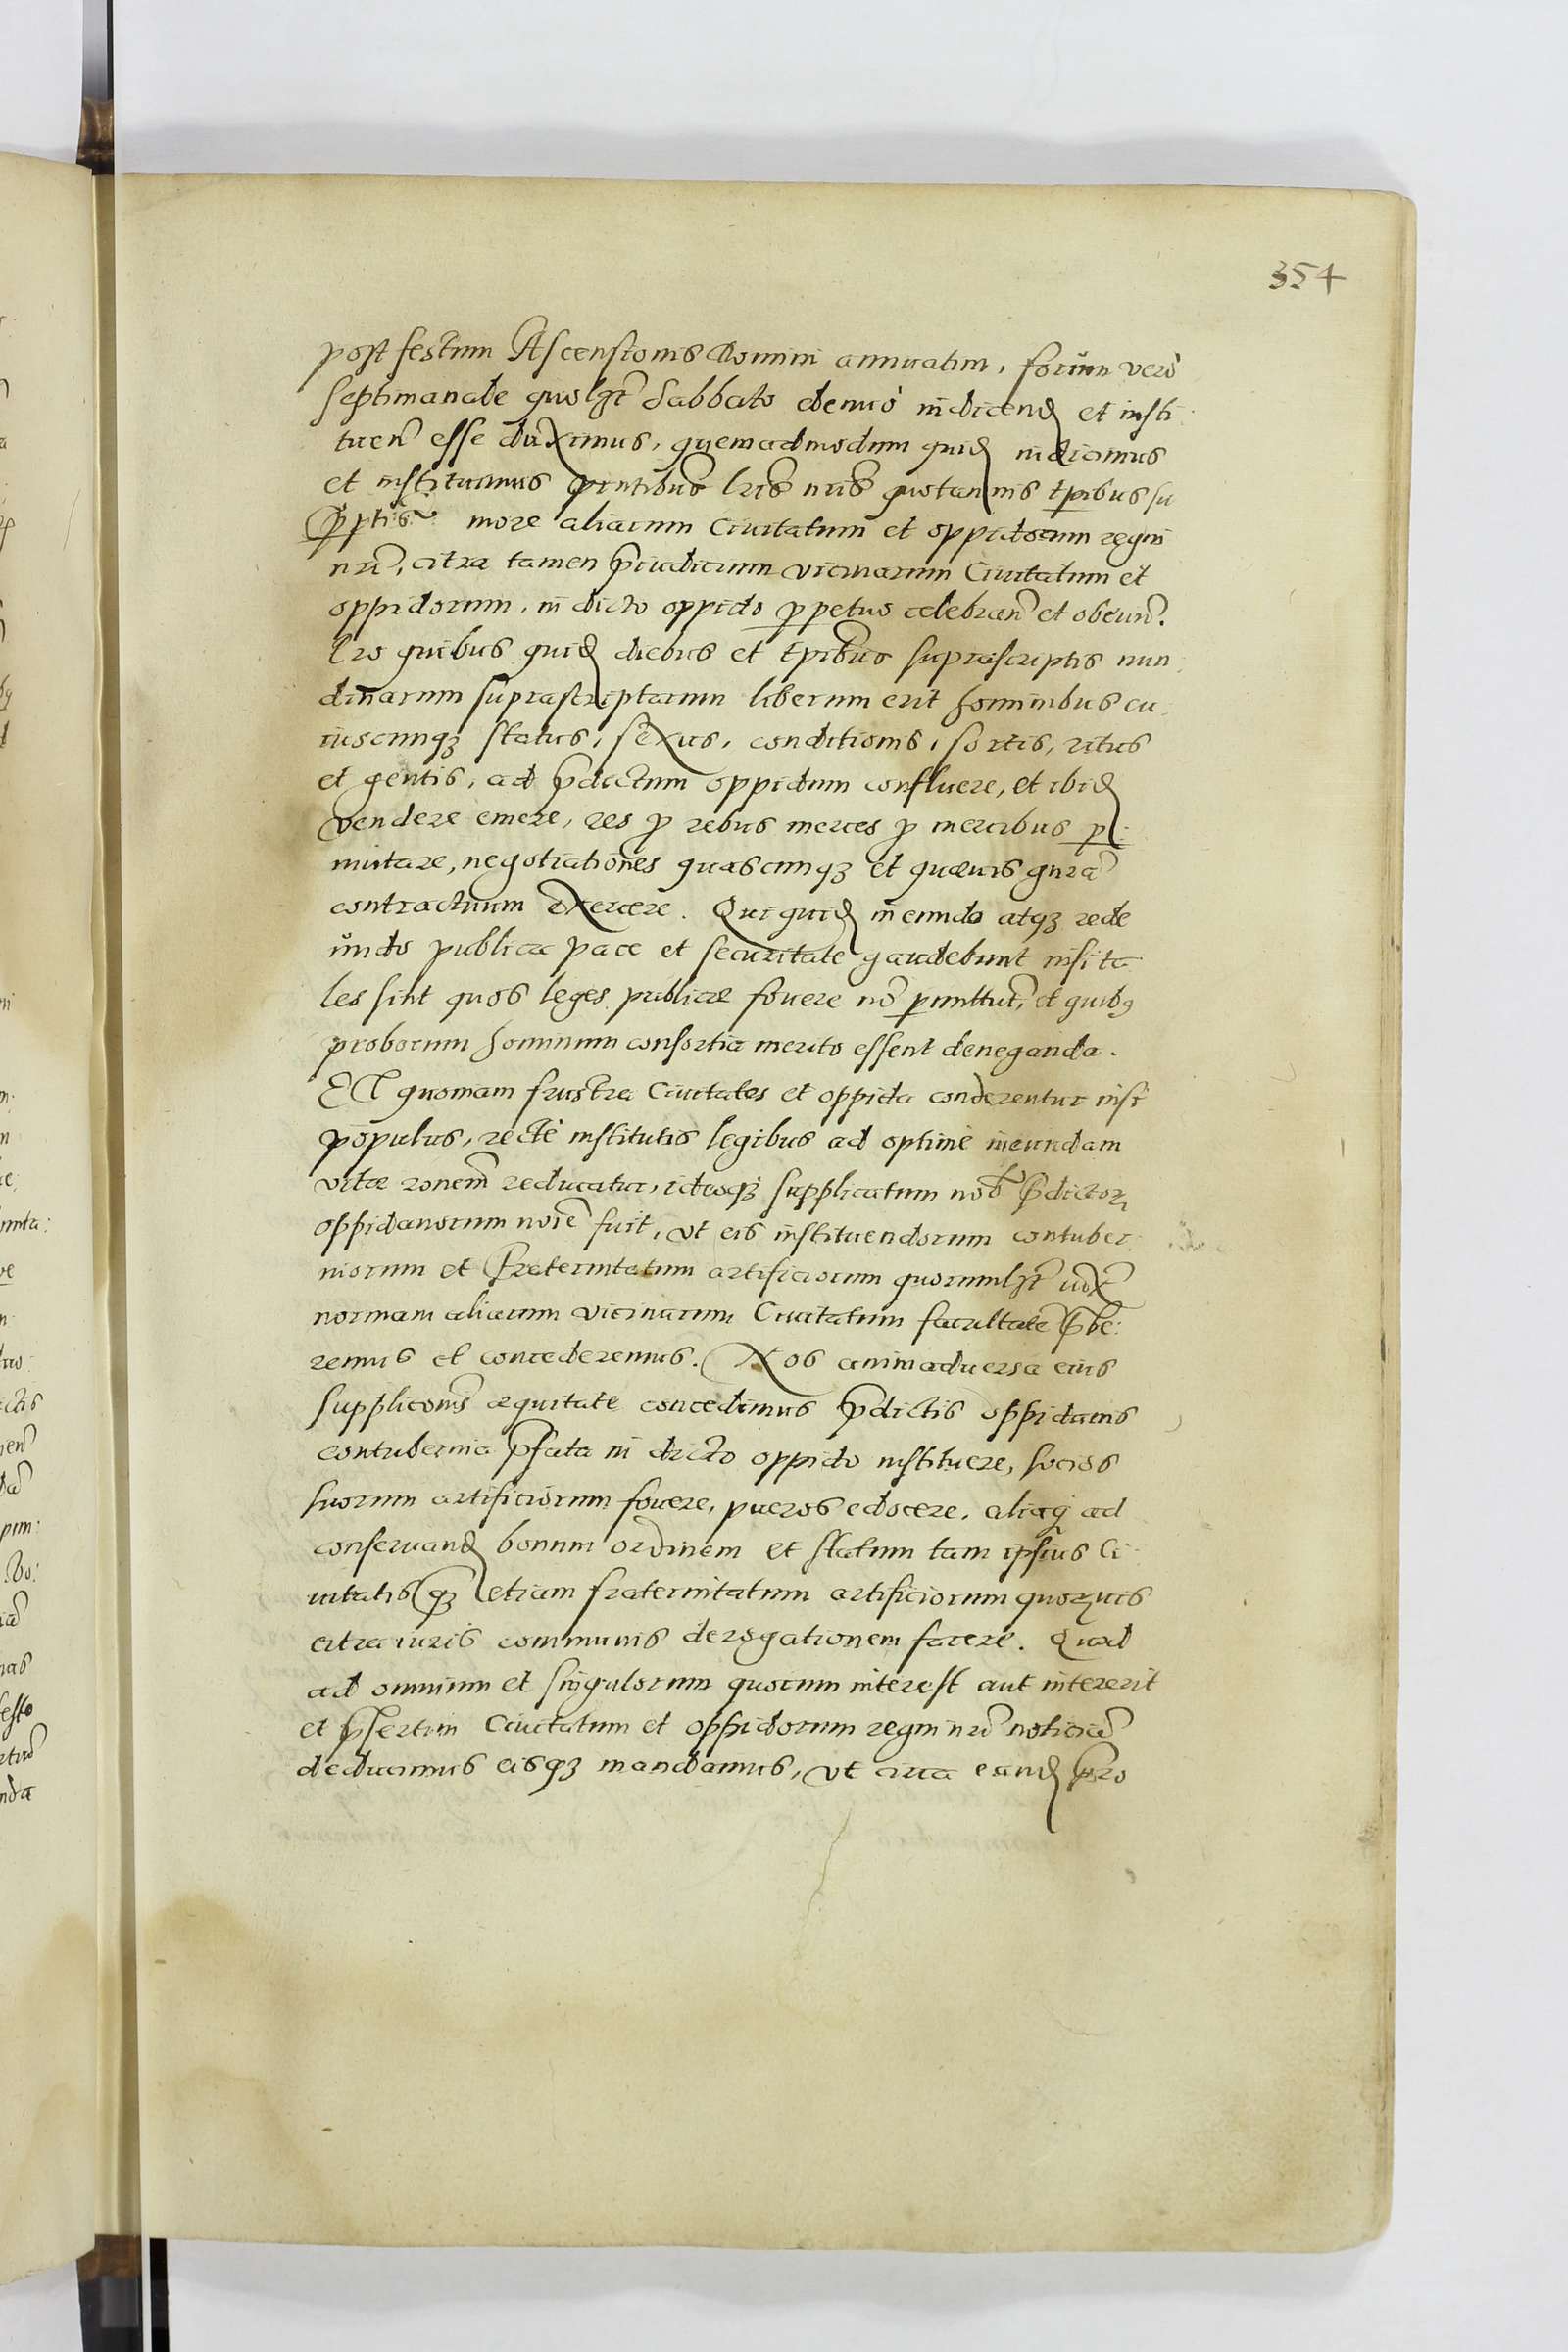 354
post festum Ascensionis Domini annuatim, forum vero
septimanale quolꝫt Sabbato denuo indicend et insti
tuen esse duximus, quemadmodum quid indicimus
et instituimus pntibus lris nris quotannis tpibus su
prapti:s more aliarum Civitatum et oppidorum regni
nri, citra tamen piudicium vicinarum Civitatum et
oppidorum, in dicto oppido ppetuo celebran et obeun.
Pro quibus quid diebus et tpibus suprascriptis nun
dinarum suprascriptarum liberum erit hominibus cu
iuscunqꝫ status, sexus, conditionis, sortis, ritus
et gentis, ad pdictum oppidum confluere, et ibid
vendere emere, res p rebus merces p mercibus p
mutare, negotiationes quascunqꝫ et quævis gnra
contractuum exercere. Qui quid in eundo atqꝫ rede
undo publica pace et securitate gaudebunt nisi ta
les sint quos leges publicæ fovere no pmittut, et quibꝫ
proborum hominum consortia merito essent deneganda.
Et quoniam frustra Civitates et oppida conderentur nisi
populus, recte institutis legibus ad optime ineundam
vitæ ronem reducatur, ideoqꝫ supplicatum nob pdictoꝝ
oppidanorum noie fuit, ut eis instituendorum contuber
niorum et fraternitatum artificiorum quorumlꝫt iux
normam aliarum vicinarum Civitatum facultate pbe:
remus et concederemus. Nos animadversa eius
supplicoms æquitate concedimus pdictis oppidanis
contubernia pfata in dicto oppido instituere, socios
suorum artificiorum fovere, pueros edocere, aliaqꝫ ad
conservand bonum ordinem et statum tam ipsius Ci
uitatis qꝫ etiam fraternitatum artificiorum quoꝝuis
citra iuris communis derogationem facere. Quod
ad omnium et singulorum quorum interest aut intererit
et psertim Civitatum et oppidorum regni nri noticia
deducimus eisqꝫ mandamus, ut circa eand pro